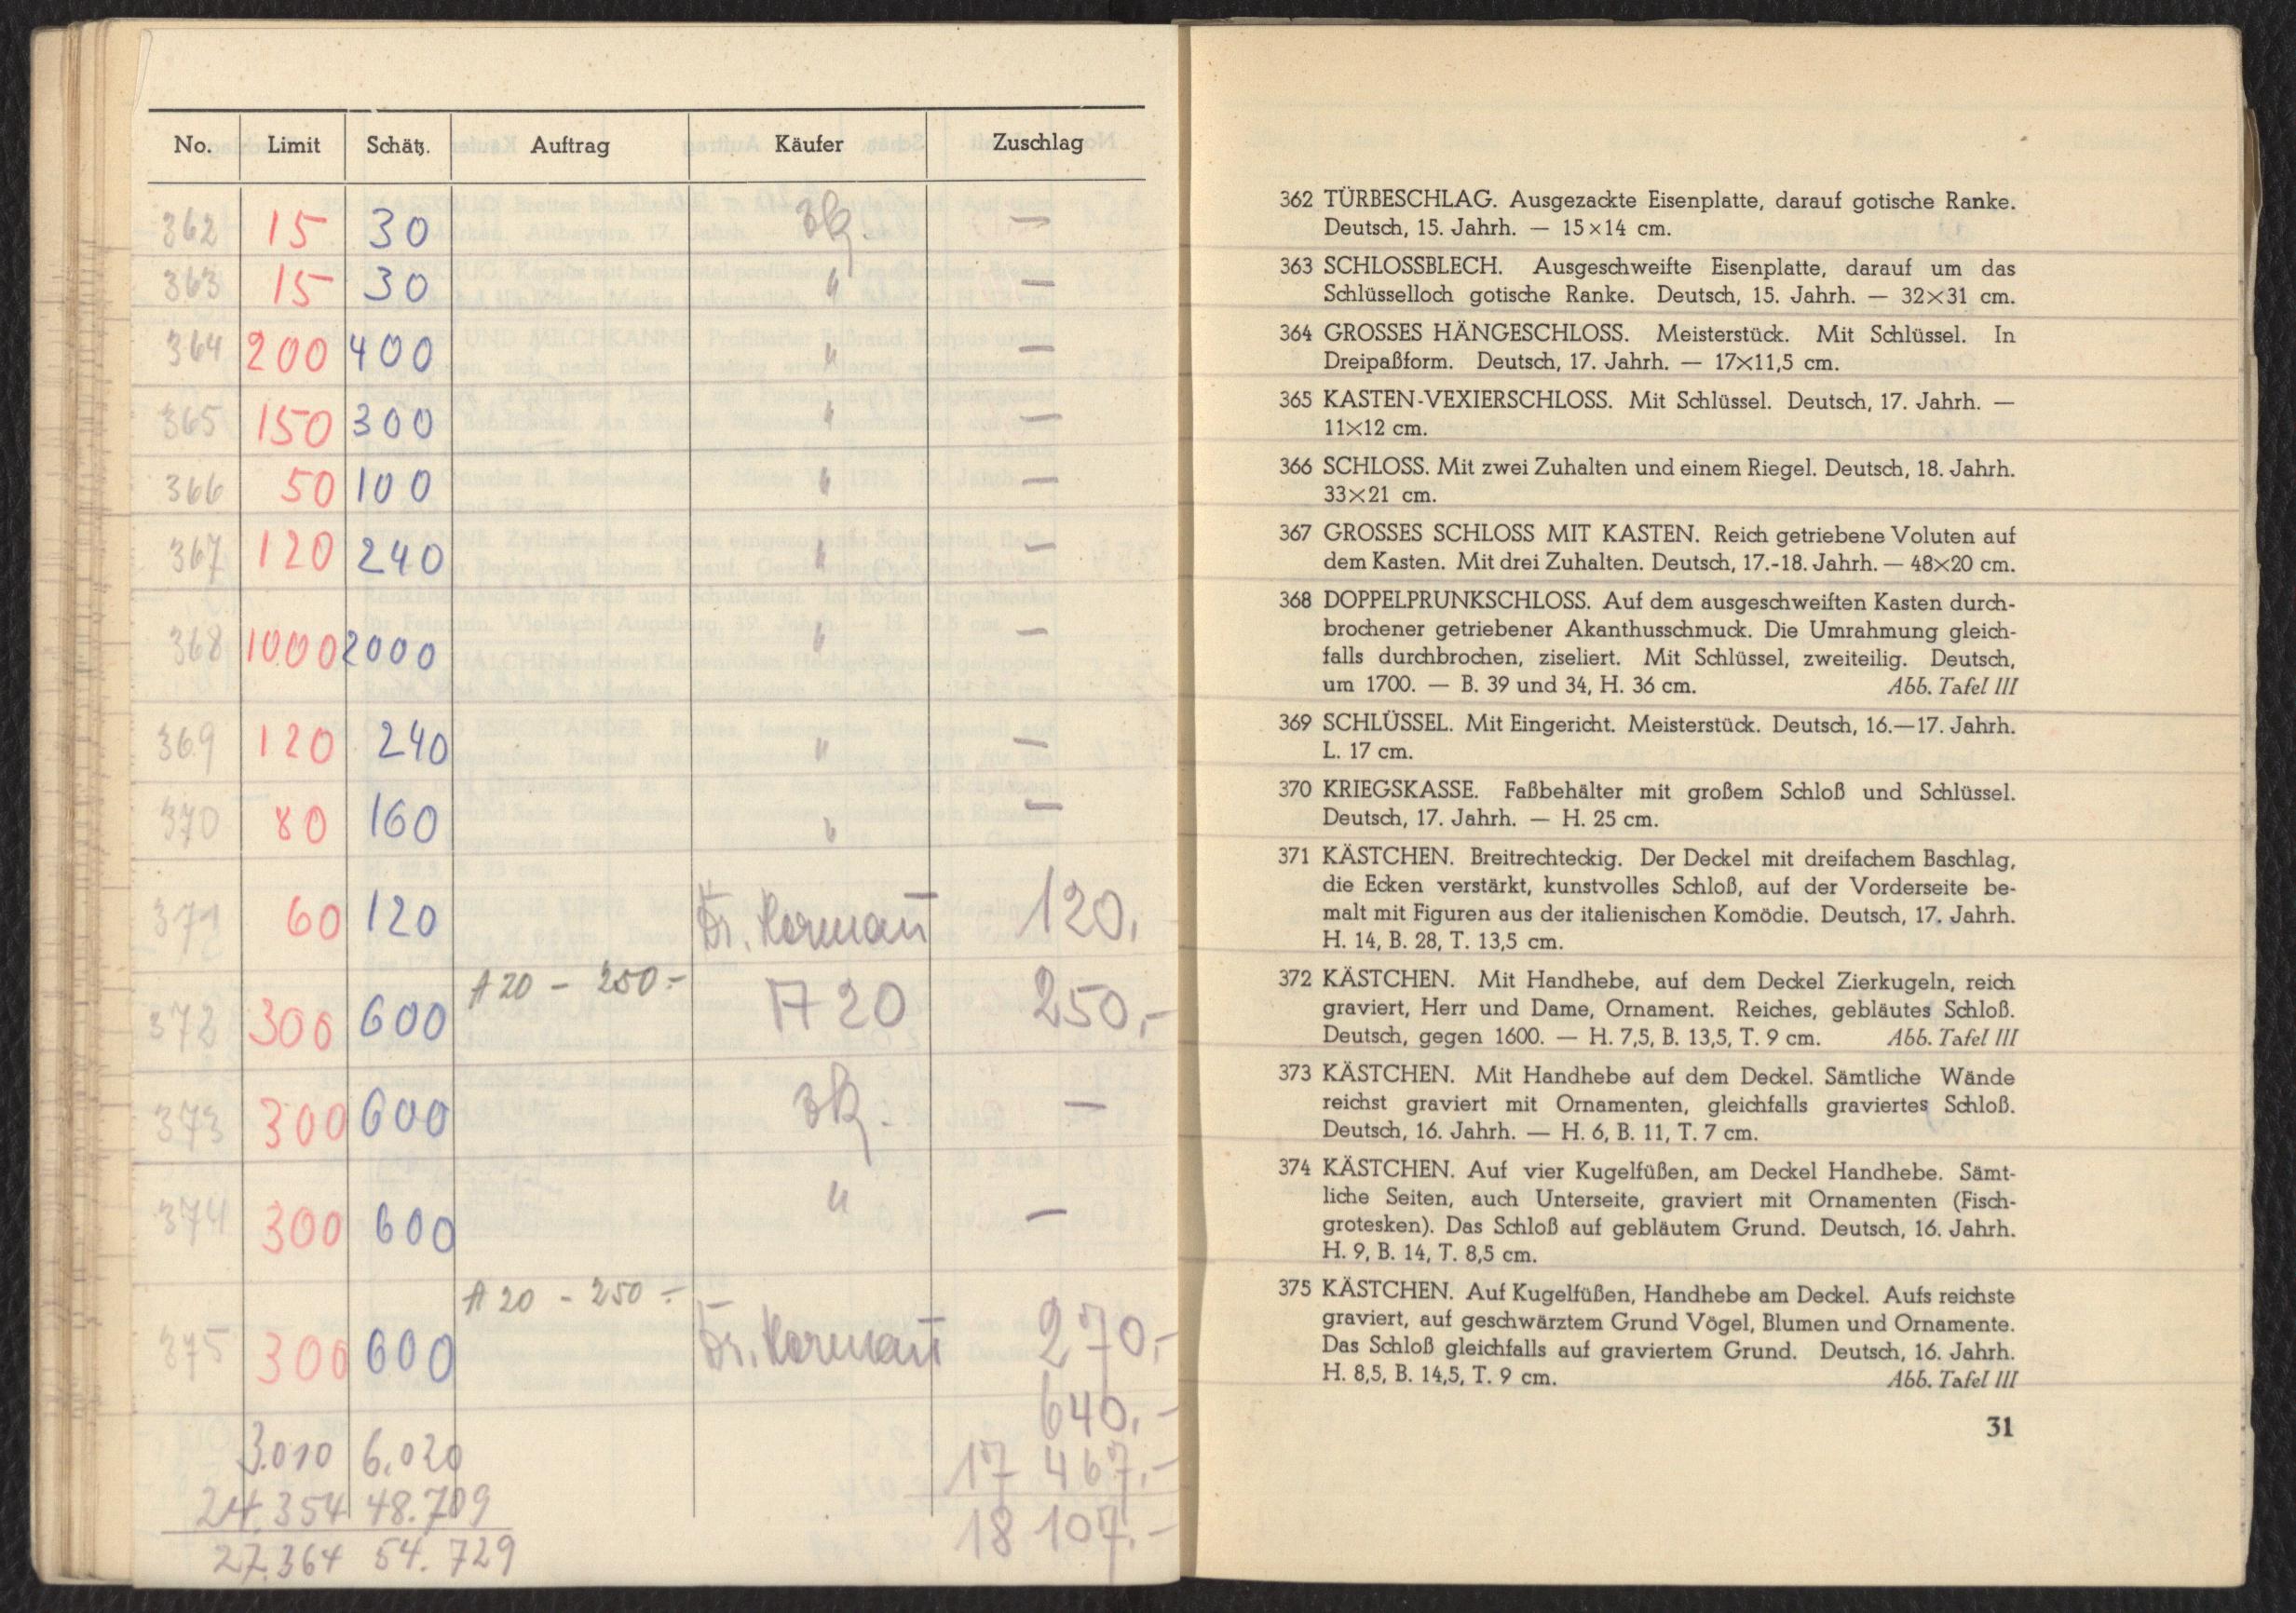 No. Limit Schätz. Auftrag Käufer Zuschlag
362 15 30 —
363 15 30 " —
364 200 400 " —
365 150 300 " —
366 50 100 " —
367 120 240 " —
368 1000 2000 " —
369 120 240 " —
370 80 160 " —
371 60 120 Dr. 120,
372 300 600 A 20 - 250.- A 20 250,-
373 300 600 —
374 300 600 " —
375 300 600 A 20 - 250.- Dr. 270,-
640,-
3.010 6.020 17 467,-
24.354 48.709 18 107.-
27.364 54.729
362 TÜRBESCHLAG. Ausgezackte Eisenplatte, darauf gotische Ranke.
Deutsch, 15. Jahrh. — 15×14 cm.
363 SCHLOSSBLECH. Ausgeschweifte Eisenplatte, darauf um das
Schlüsselloch gotische Ranke. Deutsch, 15. Jahrh. — 32×31 cm.
364 GROSSES HÄNGESCHLOSS. Meisterstück. Mit Schlüssel. In
Dreipaßform. Deutsch, 17. Jahrh. — 17×11,5 cm.
365 KASTEN-VEXIERSCHLOSS. Mit Schlüssel. Deutsch, 17. Jahrh. —
11×12 cm.
366 SCHLOSS. Mit zwei Zuhalten und einem Riegel. Deutsch, 18. Jahrh.
33×21 cm.
367 GROSSES SCHLOSS MIT KASTEN. Reich getriebene Voluten auf
dem Kasten. Mit drei Zuhalten. Deutsch, 17.-18. Jahrh. — 48×20 cm.
368 DOPPELPRUNKSCHLOSS. Auf dem ausgeschweiften Kasten durch-
brochener getriebener Akanthusschmuck. Die Umrahmung gleich-
falls durchbrochen, ziseliert. Mit Schlüssel, zweiteilig. Deutsch,
um 1700. — B. 39 und 34, H. 36 cm. Abb. Tafel III
369 SCHLÜSSEL. Mit Eingericht. Meisterstück. Deutsch, 16.—17. Jahrh.
L. 17 cm.
370 KRIEGSKASSE. Faßbehälter mit großem Schloß und Schlüssel.
Deutsch, 17. Jahrh. — H. 25 cm.
371 KÄSTCHEN. Breitrechteckig. Der Deckel mit dreifachem Baschlag,
die Ecken verstärkt, kunstvolles Schloß, auf der Vorderseite be-
malt mit Figuren aus der italienischen Komödie. Deutsch, 17. Jahrh.
H. 14, B. 28, T. 13,5 cm.
372 KÄSTCHEN. Mit Handhebe, auf dem Deckel Zierkugeln, reich
graviert, Herr und Dame, Ornament. Reiches, gebläutes Schloß.
Deutsch, gegen 1600. — H. 7,5, B. 13,5, T. 9 cm. Abb. Tafel III
373 KÄSTCHEN. Mit Handhebe auf dem Deckel. Sämtliche Wände
reichst graviert mit Ornamenten, gleichfalls graviertes Schloß.
Deutsch, 16. Jahrh. — H. 6, B. 11, T. 7 cm.
374 KÄSTCHEN. Auf vier Kugelfüßen, am Deckel Handhebe. Sämt-
liche Seiten, auch Unterseite, graviert mit Ornamenten (Fisch-
grotesken). Das Schloß auf gebläutem Grund. Deutsch, 16. Jahrh.
H. 9, B. 14, T. 8,5 cm.
375 KÄSTCHEN. Auf Kugelfüßen, Handhebe am Deckel. Aufs reichste
graviert, auf geschwärztem Grund Vögel, Blumen und Ornamente.
Das Schloß gleichfalls auf graviertem Grund. Deutsch, 16. Jahrh.
H. 8,5, B. 14,5, T. 9 cm. Abb. Tafel III
31